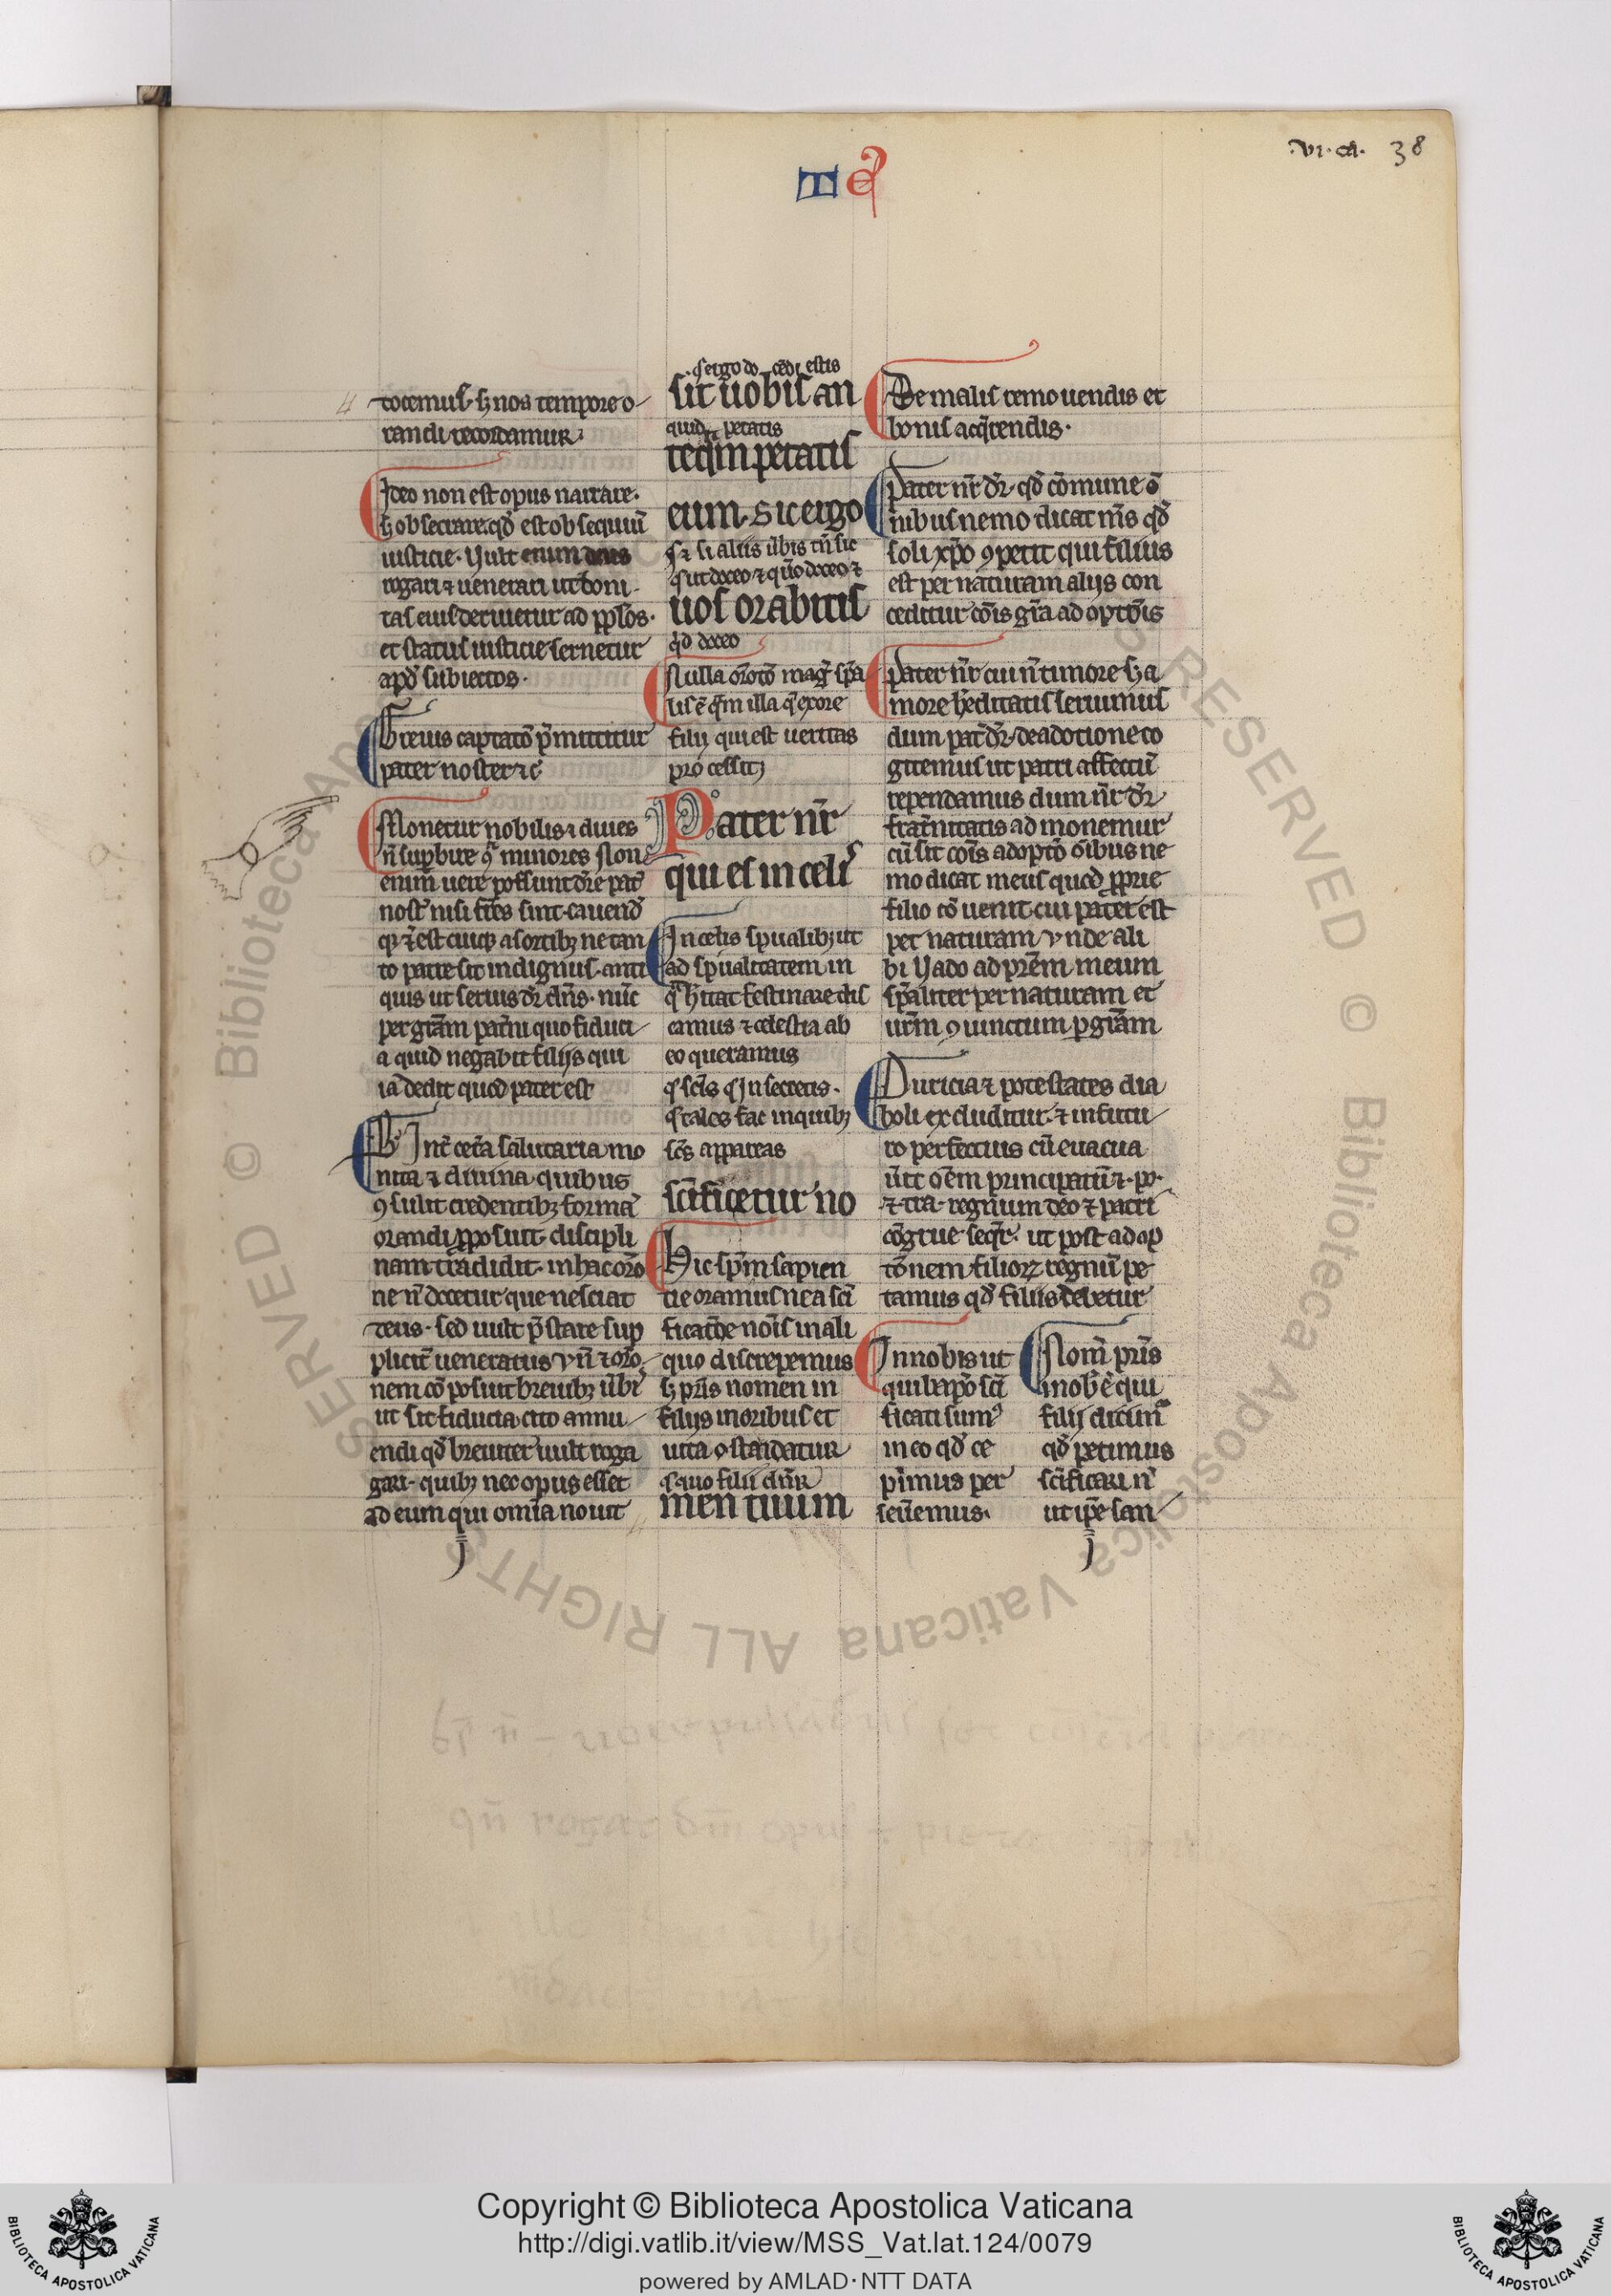 .vi. ca. 38
M a
tocemus. s; nos tempore o
randi recordamur.
Ideo non est opus narrare.
s; obsecrare. qd̄ est obsequiū
iusticie. Uult enim deus
rogari ⁊ uenerari ut boni
tas eius deriuetur ad ꝓpͥos.
et status iusticie seruetur
apd̄ subiectos.
Breuis captatō p̄mittitur
pater noster ⁊c̄
Monetur nobilis ⁊ diues
n̄ supbire qͣ minores Non
enim uere possunt dr̄e pat̄
nost̄ nisi fr̄es sint. cauend̄
to patre sit indignus. anti
quis ut seruis dr̄ dn̄s. nūc
per grām pat̄ni quo fiduci
a quid negabit filijs qui
iā dedit quod pater est
B Int̄ cet̄a salutaria mo
nita ⁊ diuina quibus
ꝯsulit credentibꝫ formā
orandi ꝓposuit. discipli
nam tradidit. in hac or̄o
ne n̄ docetur que nesciat
deus. sed uult p̄stare sup
plicit̄ ueneratus vn̄ ⁊ or̄o
nem cō posuit breuibꝫ ūbis
ut sit fiducia cito annu
endi qd̄ breuiter uult roga
gari. quibꝫ nec opus esset
ad eum qui omīa nouit
sit uobis an
quid petatis
teqͣm petatis
eum. Sic ergo
si aliis ūbis tn̄ sic
uos orabitis
qd̄ doceo
Nulla or̄oto mag̃ sp̄a
lis ē qͣm illa q̄ ex ore
filij qui est ueritas
processit
Pater nr̄
qui es in celis
In celis spualibꝫ ut
ad spualitatem in
qͣ hītat festinare dis
camus ⁊ celestia ab
eo queramus
sctīs in secretis.
tales fac in quibꝫ
scs̄ appareas
scīficetur no
Hic sp̄m sapien
tie oramus ne a scī
ficatiōe noīs in ali
quo discrepemus
s; pr̄is nomen in
filijs moribus et
uita ostendatur
quo filii dn̄r
men tuum
De malis remouendis et
bonis acq̄rendis.
Pater nr̄ dr̄. qd̄ cōmune ō
nibus nemo dicat m̄s qd̄
soli xp̄o ꝯpetit qui filius
est per naturam alijs con
ceditur cōis gr̄a adoptōis
Pater nr̄ cui n̄ timore s; a
more h̄editatis seruimus
dum pat̄ dr̄. de adoptione co
gitemus ut patri affectū
rependamus dum nr̄ dr̄
frat̄nitatis admonemur
cū sit cōis adoptō oībus ne
mo dicat meus quod ꝓprie
filio cōuenit cui pater est
per naturam vnde ali
bi Uado ad prēm meum
sp̄aliter per naturam et
ur̄m ꝯiunctum p grām
Duricia ⁊ potestates dia
boli excluditur. ⁊ in futu
ro perfectius cū euacua
ūit oēm principatū ⁊. po.
⁊ tra. regnum deo ⁊ patri
cōgrue seqr̄. ut post adop
tōnem filioꝝ regnū pe
tamus qd̄ filiis debetur
In nobis ut
qui bap̄o scī
ficati sumꝰ
in eo qd̄ ce
pimus per
seūemus.
Nom̄ pr̄is
in ob ē qui
filij dicimꝰ
qd̄ petimus
scīficari n̄
ut ip̄e san
Copyright © Biblioteca Apostolica Vaticana
http://digi.vatlib.it/view/MSS_Vat.lat.124/0079
powered by AMLAD·NTT DATA
BIBLIOTECA APOSTOLICA VATICANA
BIBLIOTECA APOSTOLICA VATICANA
© Biblioteca Apostolica Vaticana ALL RIGHTS RESERVED